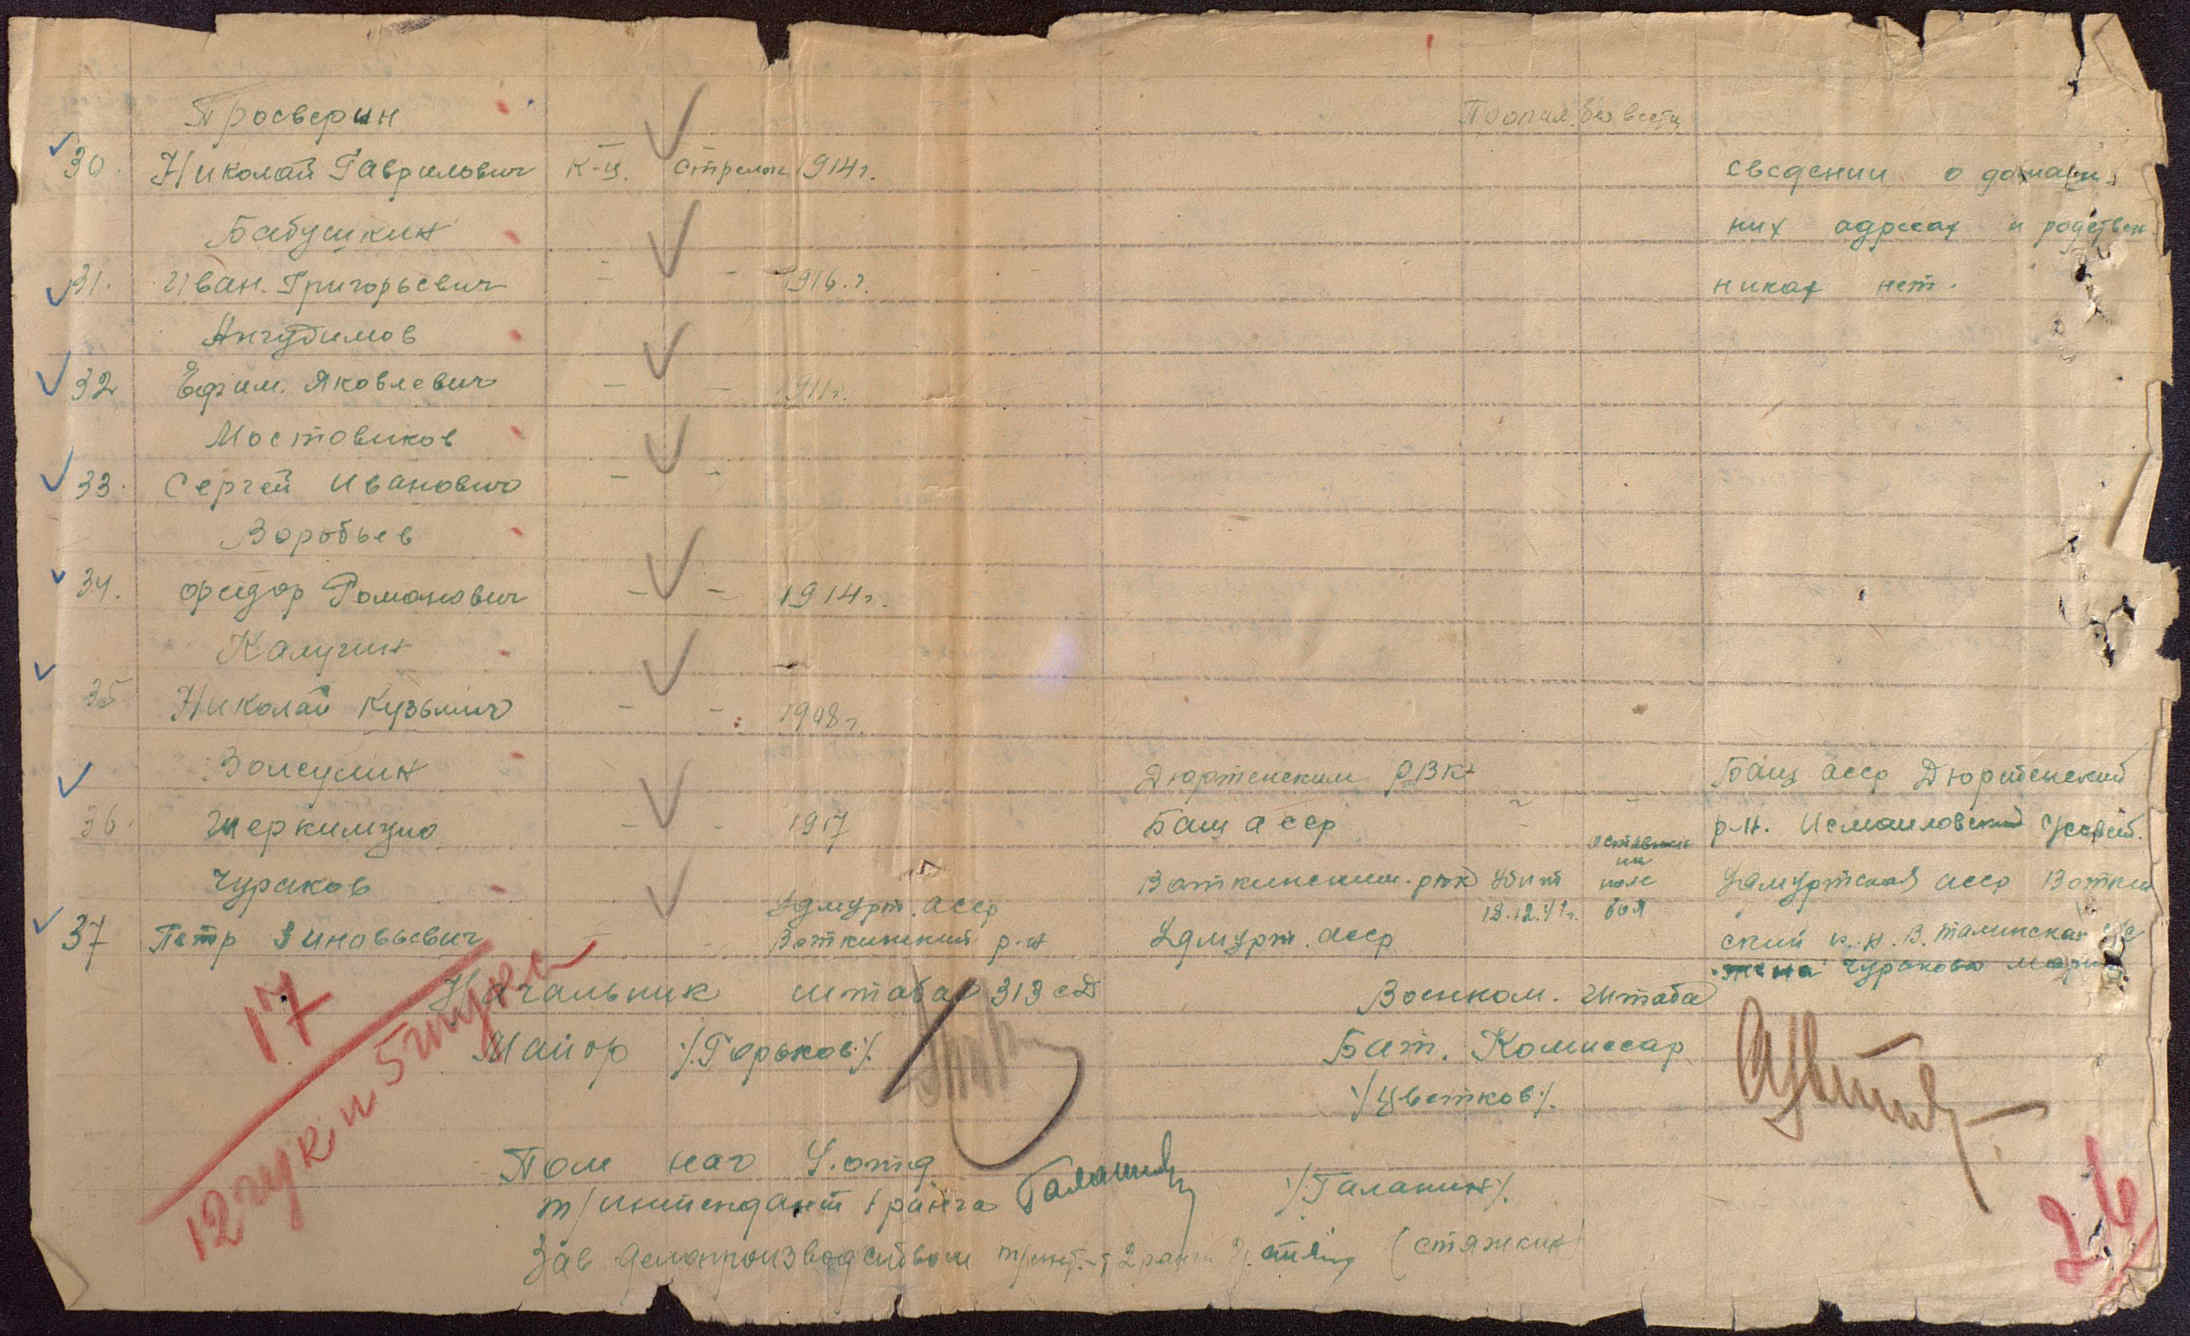 Просверин Пропал без вести
30. Николай Гаврилович К-ц. стрелок 1914 г. сведении о домаш
Бабушкин них адресах и родствен
31. Иван. Григорьевич - - 1916. г. никах нет.
Анчудимов
32 Ефим. Яковлевич - - 1911 г.
Мостовиков
33. Сергей Иванович - -
Воробьев
34. Федор Романович - - 1914 г.
Калугин
35 Николай Кузьмич - - 1908 г.
Дюртенским РВК Баш асср Дюртенский
36. - - 1917 Баш асср р-н. Исмаиловский
Чураков Воткинским. рвк убит оставлен на поле Удмуртская асср Воткин
37 Петр Зиновьевич - Удмурт. асср Воткинский р-н Удмурт. асср 18.12.41 г. боя ский р-н.
жена Чуракова
Начальник штаба 313 сд Военком. штаба
Майор /Горьков/. Бат. Комиссар
/Цветков/.
17
12 чук и 5
Пом нач 4. отд
т/интендант 1 ранга /Галанин/.
Зав делопроизводством 2 ранга (стяжкин)
26